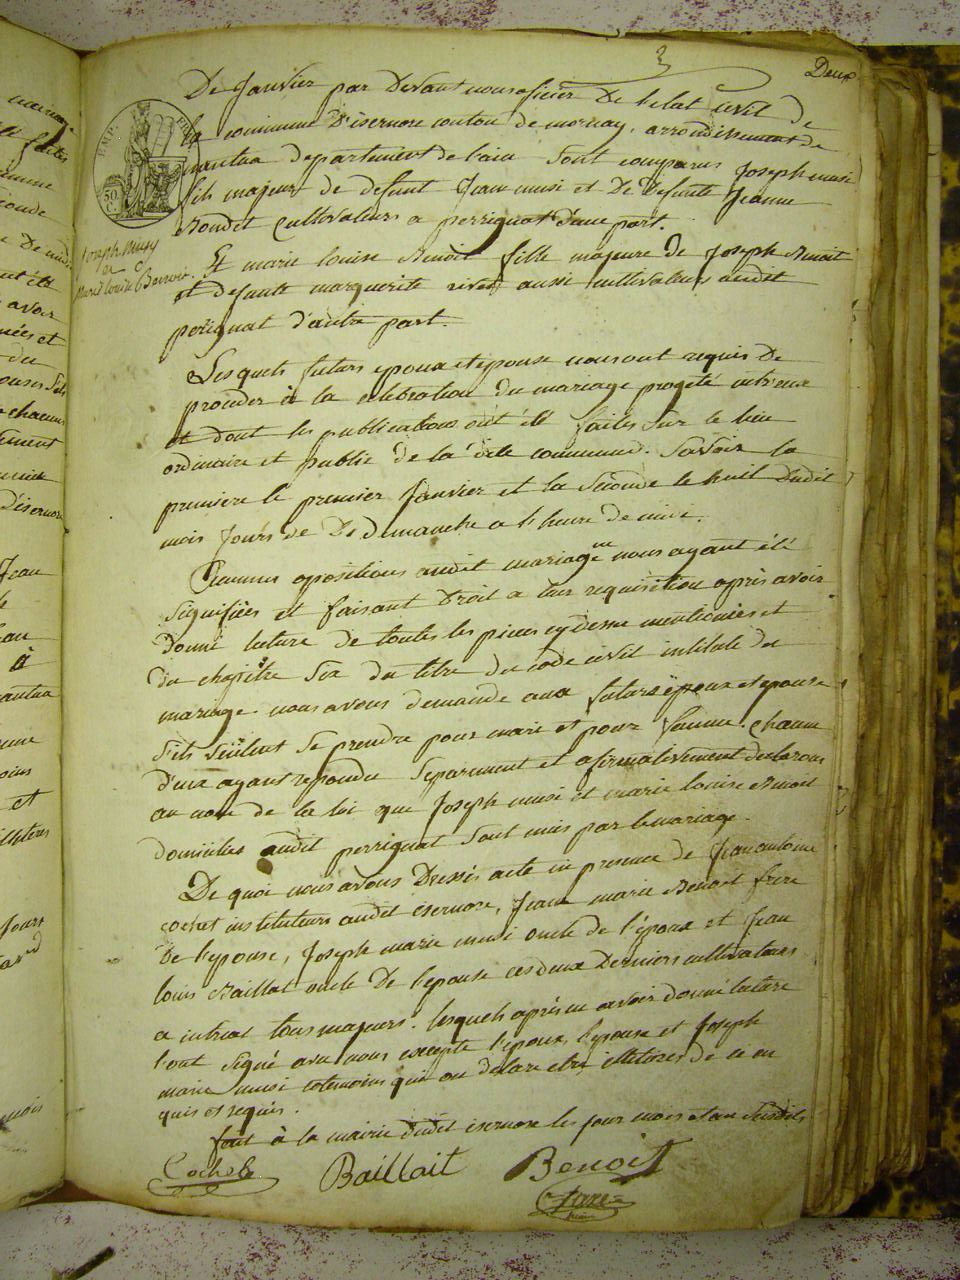 2
Deux
De Janvier par Devant nous oficier De l'etat civil de
la commune D'isernore conton de mornay, arrondissement de
nantua departement de l'ain Sont comparus Joseph musi
fils majeur de defunt Jean musi et De defunte Jeanne
Bondet Cultivateurs a perrignat d'une part.
EMP. FRA.
50 C.
Joseph Musy
et
Marie Louise Benoit.
Et marie louise Benoit fille majeure de Joseph Benoit
et defunte marguerite rivet aussi cultivateurs audit
perrignat d'autre part.
Lesquels futurs epoux et epouse nous ont requis De
proceder à la celebration du mariage progeté entr'eux
et dont les publications ont été faites Sur le lieu
ordinaire et public de la dite commune. Savoir la
premiere le premier Janvier et la Seconde le huit Dudit
mois Jours de De dimanche a l'heure de midi.
Aucunes opositions audit mariage ne nous ayant été
Signifiées et faisant Droit a leur requisition après avoir
Donné lecture de toutes les pieces cy dessu mentionnées et
Du chapitre Six du titre du code civil intitulé du
mariage. nous avons demande aux futurs époux et epouse
S'ils veulent Se prendre pour mari et pour femme. chacun
D'eux ayant repondu Separement et afirmativement declarons
au nom de la loi que Joseph musi et marie louise Benoit
domiciliés audit perrignat Sont unis par le mariage.
De quoi nous avons Dressés acte en presence de Jean antoine
cochet instituteurs audit isernore, Jean marie Benoit frere
De l'epouse, Joseph marie musi oncle de l'époux et Jean
louis Baillat oncle De l'epouse ces deux Derniers cultivateurs
a intriat tous majeurs. lesquels après en avoir donné lecture
l'ont Signé avec nous excepte l'epoux, l'epouse et Joseph
marie musi cotemoins qui on declare etre illitéres de ce en
quis et requis.
fait à la mairie dudit isernore les jour mois et an Susdits
Cochet Baillait Benoit